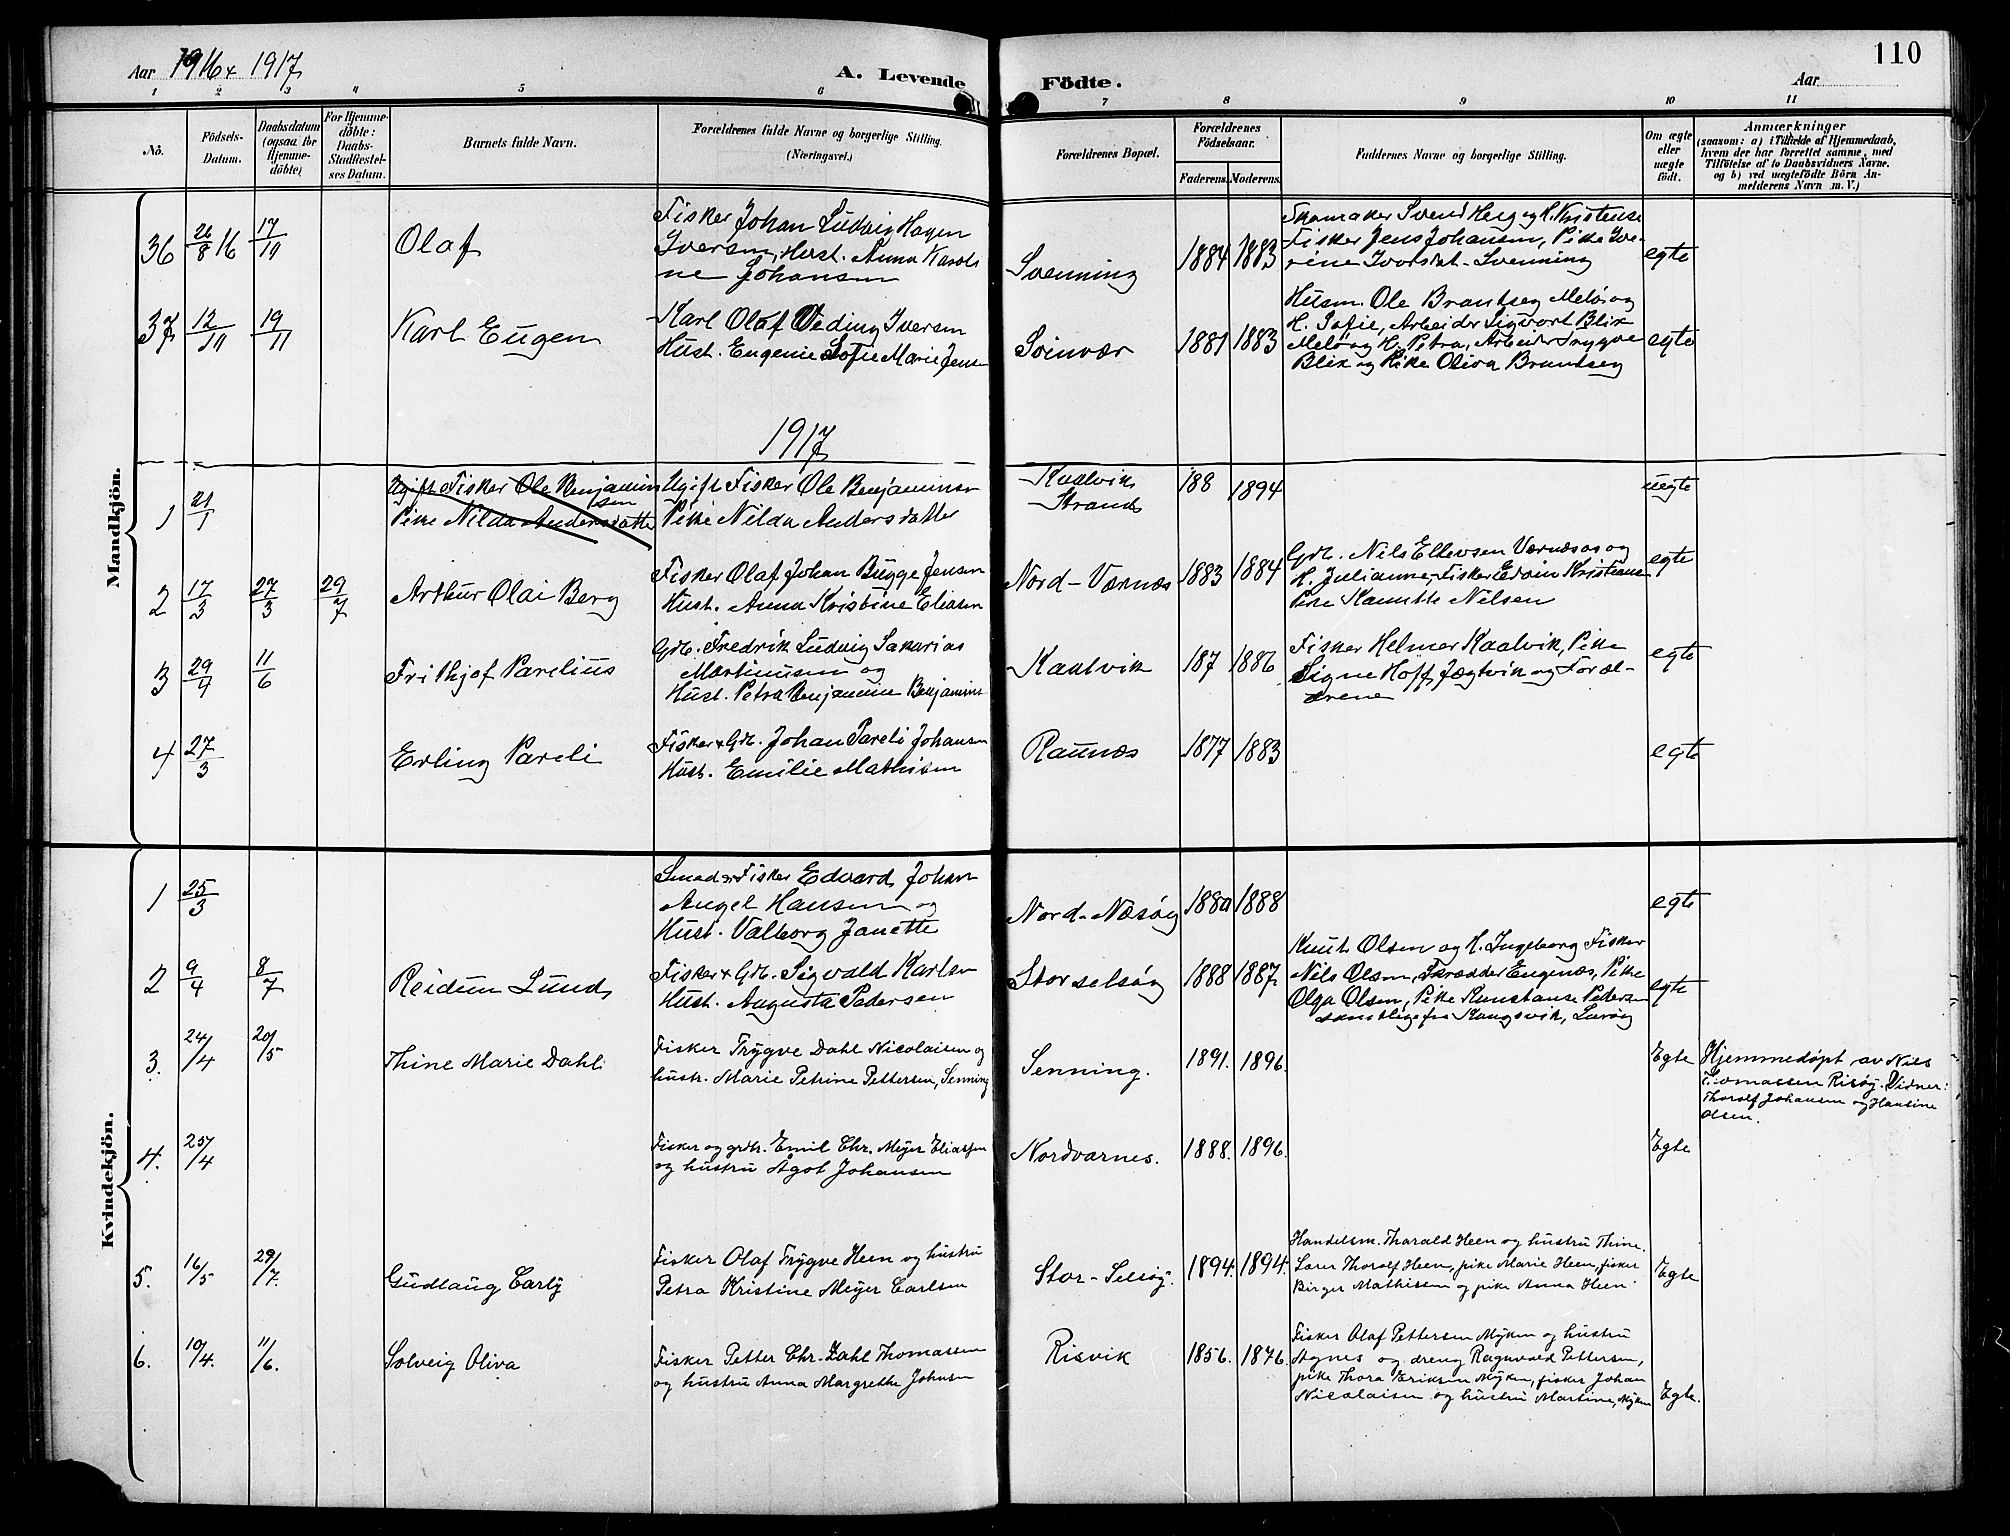 110
Aar 1916 & 1917
A. Levende Födte.
Aar
1 2 3 4 5 6 7 8 9 10 11
No.
Födsels-
Datum.
Daabsdatum
(ogsaa for
Hjemme-
döbte)
For Hjemme-
döbte:
Daabs-
Stadfæstel-
ses Datum.
Barnets fulde Navn.
Forældrenes fulde Navne og borgerlige Stilling.
(Næringsvei.)
Forældrenes Bopæl.
Forældrenes
Födselsaar.
Faderens. Moderens.
Faddernes Navne og borgerlige Stilling.
Om ægte
eller
uægte
födt.
Anmærkninger
(saasom: a) i Tilfælde af Hjemmedaab,
hvem der har forrettet samme, med
Tilföielse af to Daabsvidners Navne.
og b) ved uægtefödte Börn An-
melderens Navn m. V.)
Mandkjön.
36 26/8 16 17/11 Olaf
Fisker Johan Ludvig Hagen
Iversen, Hust. Anna Karoli
ne Johansen
Svenning 1884 1883
Skomaker Svend Heig og H. Kristense
Fisker Jens Johansen, Pike Ive-
rine Ivarsdat. Svenning
egte
37 12/11 19/11 Karl Eugen
Karl Olaf Oeding Iversen
Hust. Eugenie Sofie Marie Jensen
Svinvær 1881 1883
Husm. Ole Brantseg Melö og
H. Sofie, Arbeider Sigvort Blix
Melö og H. Petra, Arbeider Trygve
Blix og Pike Oliva Brantseg
egte
1917
1 21/1
Ugift Fisker Ole Benjamin
sen
Pike Nilda Andersdatter
Ugift Fisker Ole Benjaminsen
Pike Nilda Andersdatter
Kaalvik
Strand
188 1894 uegte
2 17/3 27/3 29/7 Arthur Olai Berg
Fisker Olaf Johan Bugge Jensen
Hust. Anna Kristine Eliasen
Nord-Værnæs 1883 1884
Grb. Nils Ellevsen Værnæs og
H. Julianne, Fisker Edvin Kristians
Pike Nilsen
egte
3 29/4 11/6 Frithjof Parelius
Grb. Fredrik Ludvig Sakarias
Martinusen og
Hust. Petra Benjamine Benjamins
Kaalvik 187 1886
Fisker Helmer Kaalvik, Pike
Signe Hoff, Jægtvik og Foræl-
drene
egte
4 27/3 Erling Pareli
Fisker & Grb. Johan Pareli Johansen
Hust. Emilie Mathisen
Raunæs 1877 1883 egte
Kvindekjön.
1 25/3
Smed og Fisker Edvard Johan
Angel Hansen og
Hust. Valborg Janette
Nord-Næsöy 1880 1888 egte
2 9/4 8/7 Reidun Lund
Fisker & Grb. Sigvald Karlsen
Hust. Augusta Pedersen
Storselsöy 1888 1887
Knut Olsen og H. Ingeborg Fisker
Nils Olsen, Skrædder Eugenæs, Pike
Olga Olsen, Pike Kunstanse Pedersen
samtlige fra Kongsvik, Lurøy
egte
3. 24/4 20/5 Thine Marie Dahl.
Fisker Trygve Dahl Nicolaisen og
hustr. Marie Petrine Pettersen, Senning
Senning. 1891. 1896. Egte
Hjemmedøpt av Nils
Thomassen Risøy. Vidner:
Thorolf Johansen og Hansine
Olsen.
4. 25/4
Fisker og grdbr. Emil Chr. Meyer Eliassen
og hustru Ågot Johansen
Nordvarnes. 1888. 1896. Egte
5. 16/5 29/7. Gudlaug Carly
Fisker Olaf Trygve Heen og hustru
Petra Kristine Meyer Carlsen
Stor-Selsöy. 1894. 1894.
Handelsm. Tharald Heen og hustru Thine.
Lærer Thorolf Heen, pike Marie Heen, fisker
Birger Mathisen og pike Anna Heen
Egte
6. 10/4. 11/6. Solveig Oliva
Fisker Petter Chr. Dahl Thomassen
og hustru Anna Margrethe Johnsen
Risvik 1856. 1876.
Fisker Olaf Pettersen Myken og hustru
Agnes og dreng Ragnvald Pettersen,
pike Thora Eriksen Myken, fisker Johan
Nicolaisen og hustru Martine, Myken
Egte.